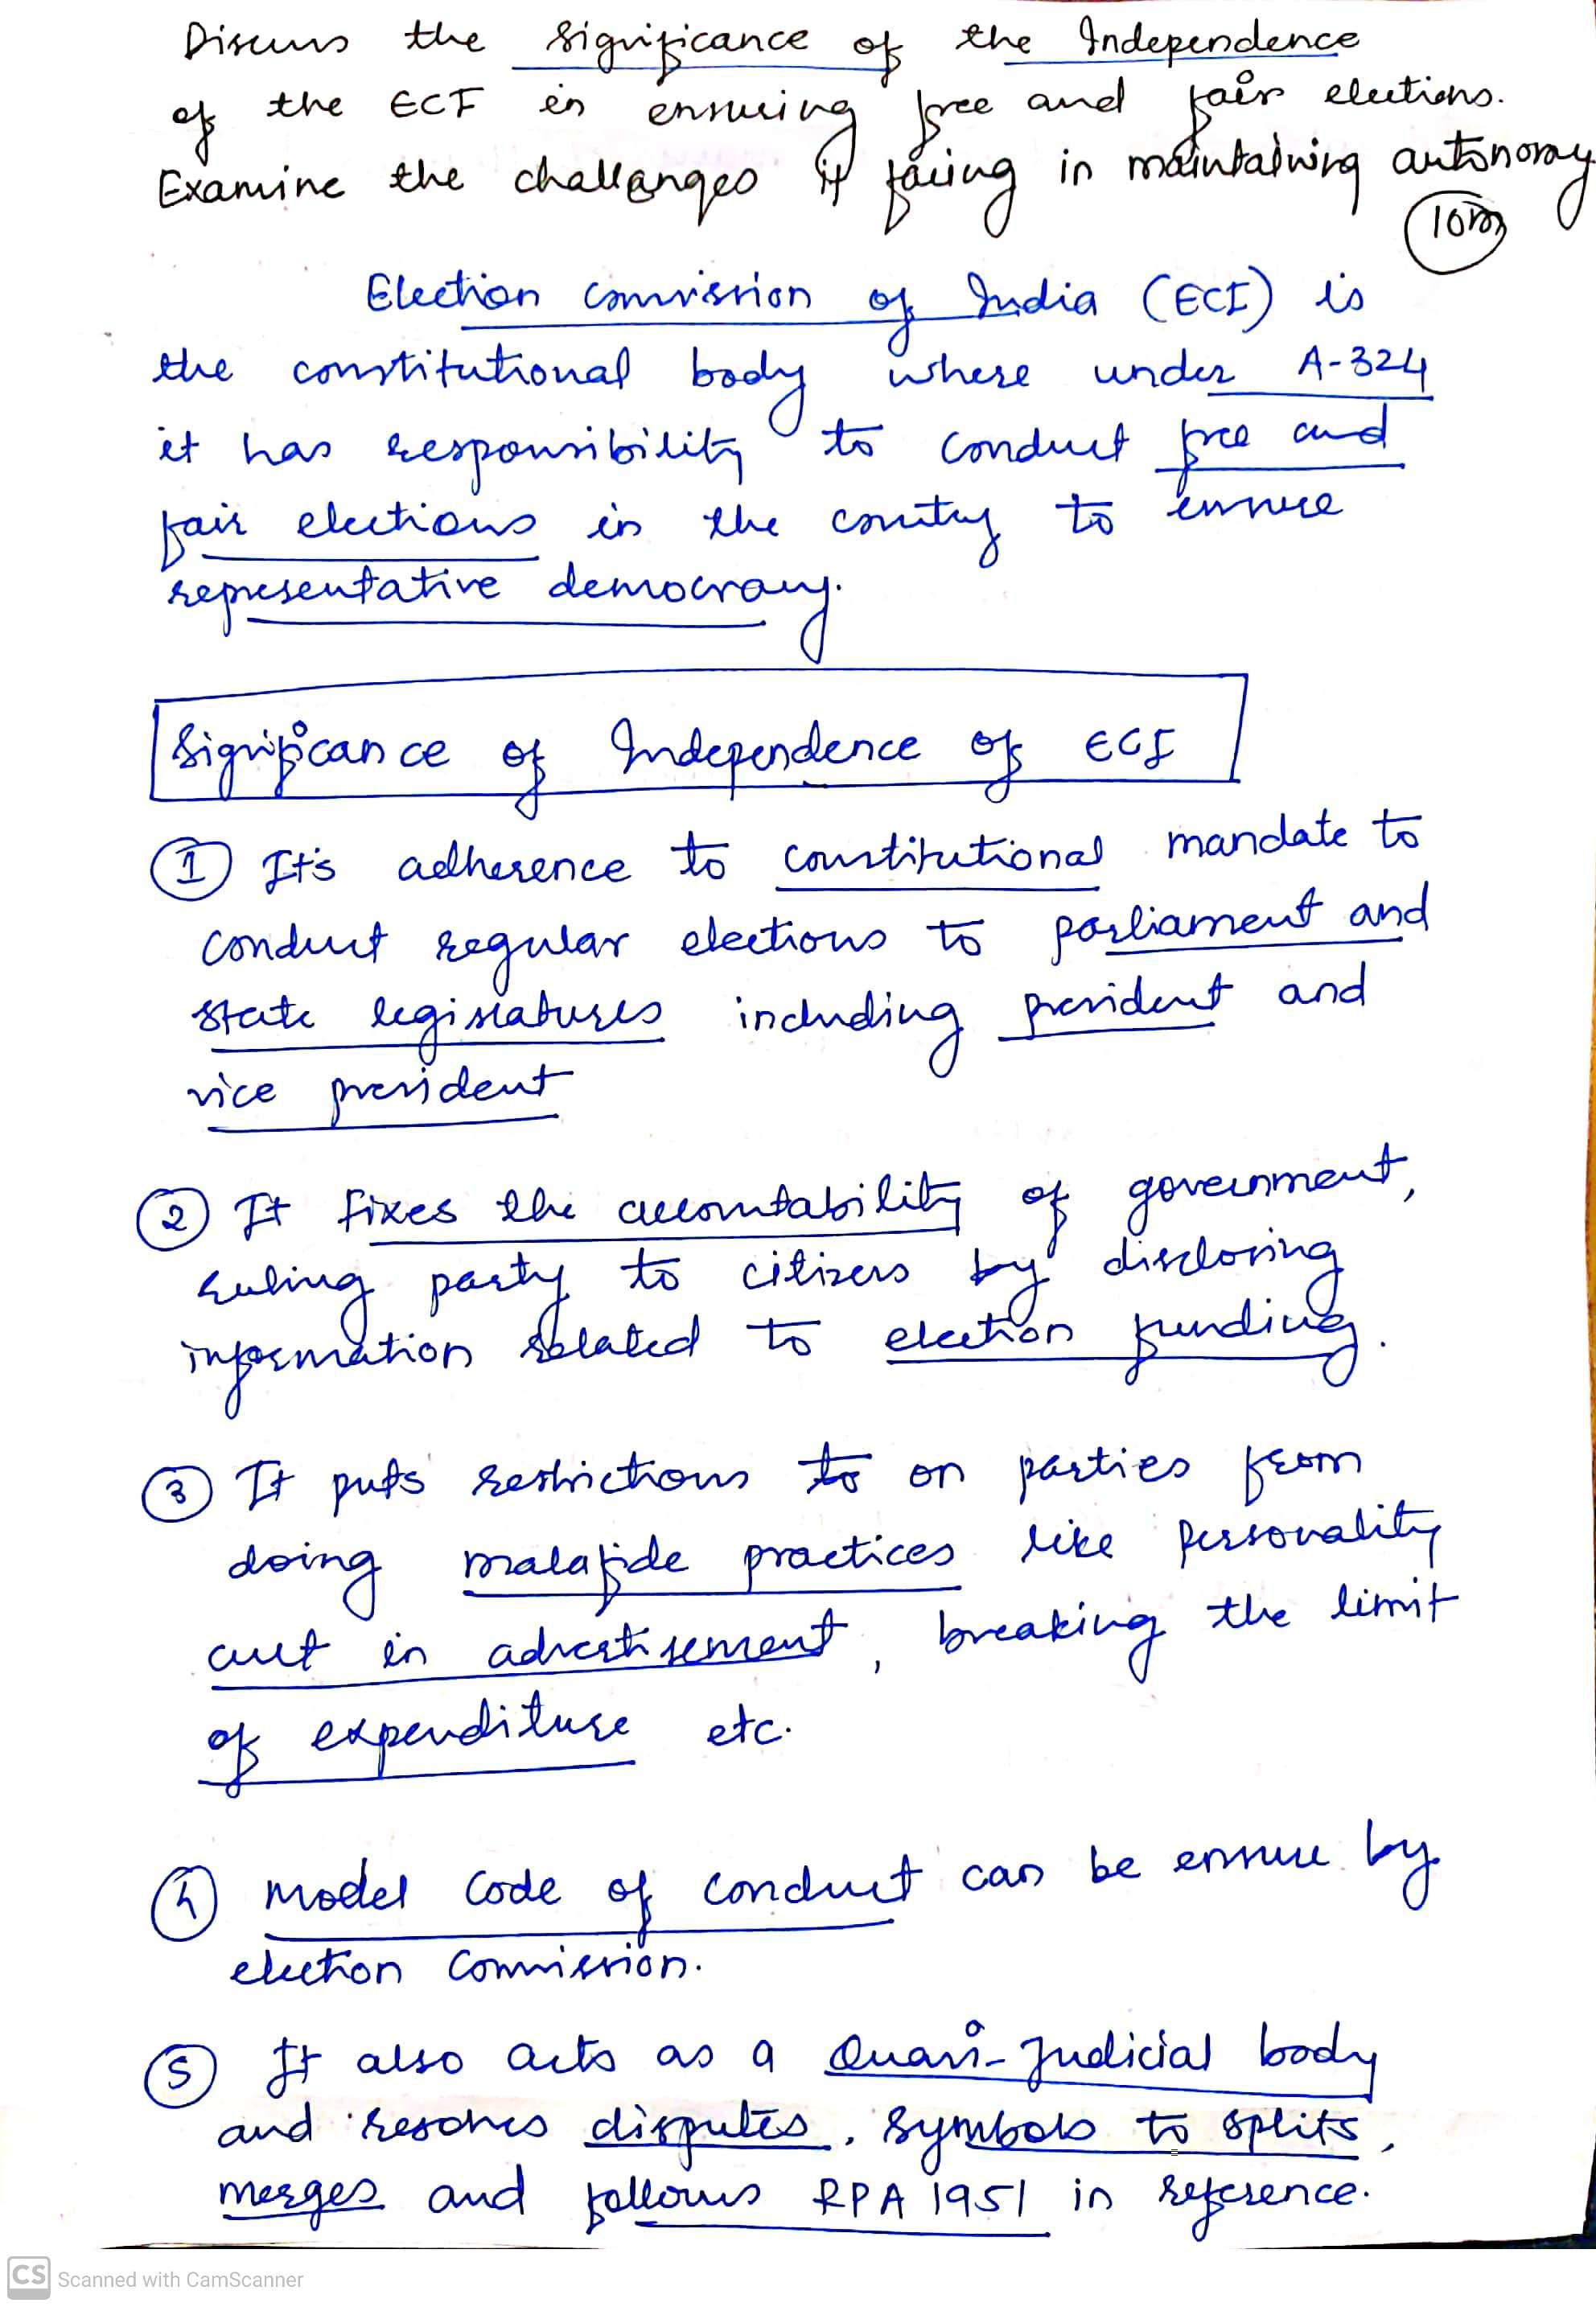 Discuss the significance of the Independence
of the ECI in ensuring free and fair elections.
Examine the challanges it facing in maintaining autonomy
10m
Election commission of India (ECI) is
the constitutional body where under A-324
it has responsibility to conduct free and
fair elections in the country to ensure
representative democracy.
Significance of Independence of ECI
① It's adherence to constitutional mandate to
conduct regular elections to parliament and
state legislatures including president and
vice president
② It fixes the accountability of government,
ruling party to citizens by disclosing
information related to election funding.
③ It puts restrictions to on parties from
doing malafide practices like personality
cult in advertisement, breaking the limit
of expenditure etc.
④ Model Code of conduct can be ensure by
election commission.
⑤ It also acts as a Quasi-Judicial body
and resolves disputes, symbols to splits,
merges and follows RPA 1951 in reference.
CS Scanned with CamScanner